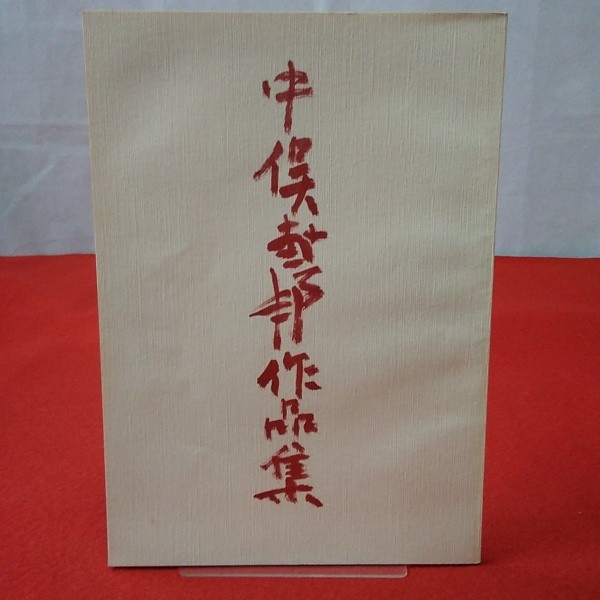 中俣邦作品集